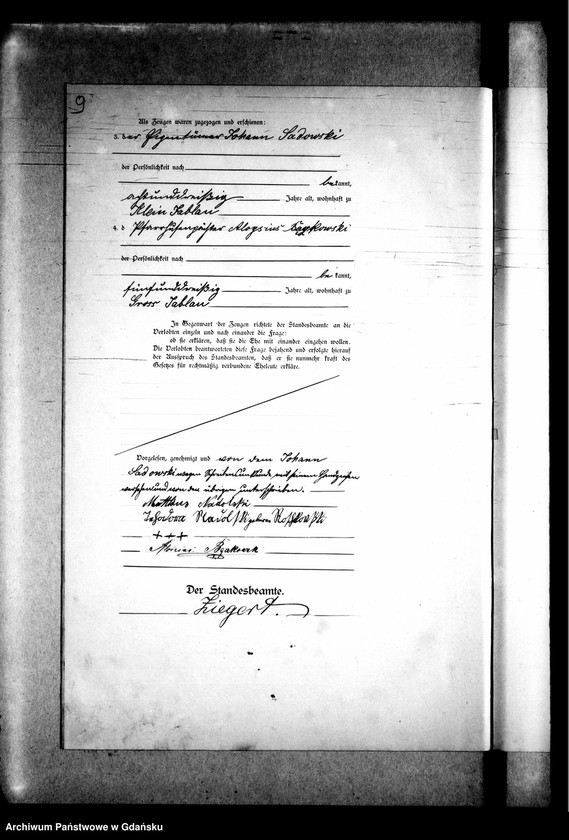 9
Als Zeugen waren zugezogen und erschienen:
3. der Eigentümer Johann Sadowski
der Persönlichkeit nach
bekannt,
achtunddreißig Jahre alt, wohnhaft zu
Klein Jablau
4. d Pfarrhufenpächter Aloysius
der Persönlichkeit nach
be kannt,
fünfunddreißig Jahre alt, wohnhaft zu
Gross Jablau
In Gegenwart der Zeugen richtete der Standesbeamte an die
Verlobten einzeln und nach einander die Frage:
ob sie erklären, daß sie die Ehe mit einander eingehen wollen.
Die Verlobten beantworteten diese Frage bejahend und erfolgte hierauf
der Ausspruch des Standesbeamten, daß er sie nunmehr kraft des
Gesetzes für rechtmäßig verbundene Eheleute erkläre.
Vorgelesen, genehmigt und von dem Johann
Sadowski wegen Schreibensunkunde mit seinem Handzeichen
versehen und von den übrigen unterschrieben.
Nadolski
geborene
+++
Der Standesbeamte.
Ziegert.
Archiwum Państwowe w Gdańsku